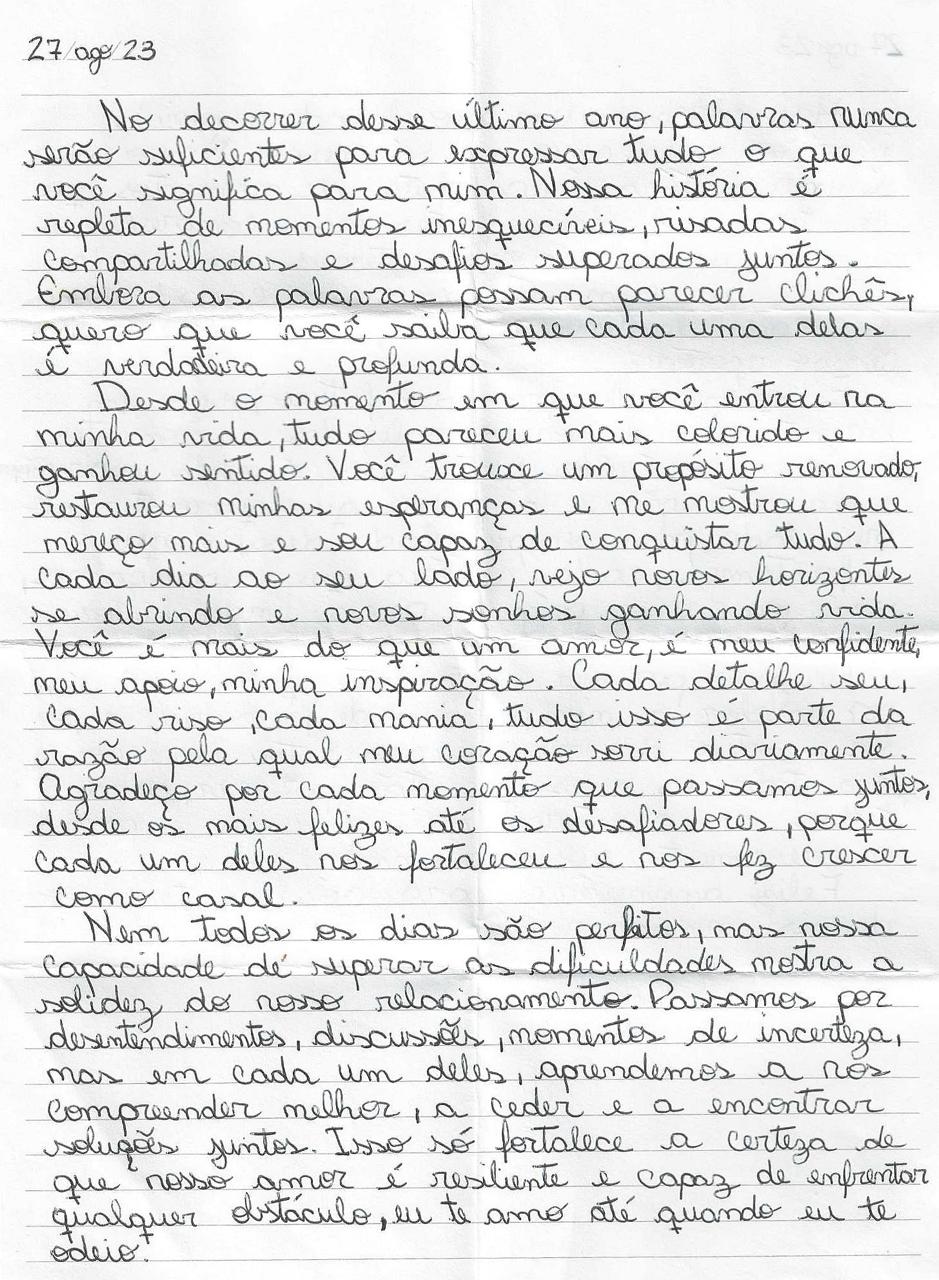 27/ago/23
No decorrer desse último ano, palavras nunca
serão suficientes para expressar tudo o que
você significa para mim. Nossa história é
repleta de momentos inesquecíveis, risadas
compartilhadas e desafios superados juntos.
Embora as palavras possam parecer clichês,
quero que você saiba que cada uma delas
é verdadeira e profunda.
Desde o momento em que você entrou na
minha vida, tudo pareceu mais colorido e
ganhou sentido. Você trouxe um propósito renovado,
restaurou minhas esperanças e me mostrou que
mereço mais e sou capaz de conquistar tudo. A
cada dia ao seu lado, vejo novos horizontes
se abrindo e novos sonhos ganhando vida.
Você é mais do que um amor, é meu confidente,
meu apoio, minha inspiração. Cada detalhe seu,
cada riso, cada mania, tudo isso é parte da
razão pela qual meu coração sorri diariamente.
Agradeço por cada momento que passamos juntos,
desde os mais felizes até os desafiadores, porque
cada um deles nos fortaleceu e nos fez crescer
como casal.
Nem todos os dias são perfeitos, mas nossa
capacidade de superar as dificuldades mostra a
solidez do nosso relacionamento. Passamos por
desentendimentos, discussões, momentos de incerteza,
mas em cada um deles, aprendemos a nos
compreender melhor, a ceder e a encontrar
soluções juntos. Isso só fortalece a certeza de
que nosso amor é resiliente e capaz de enfrentar
qualquer obstáculo, eu te amo até quando eu te
odeio.